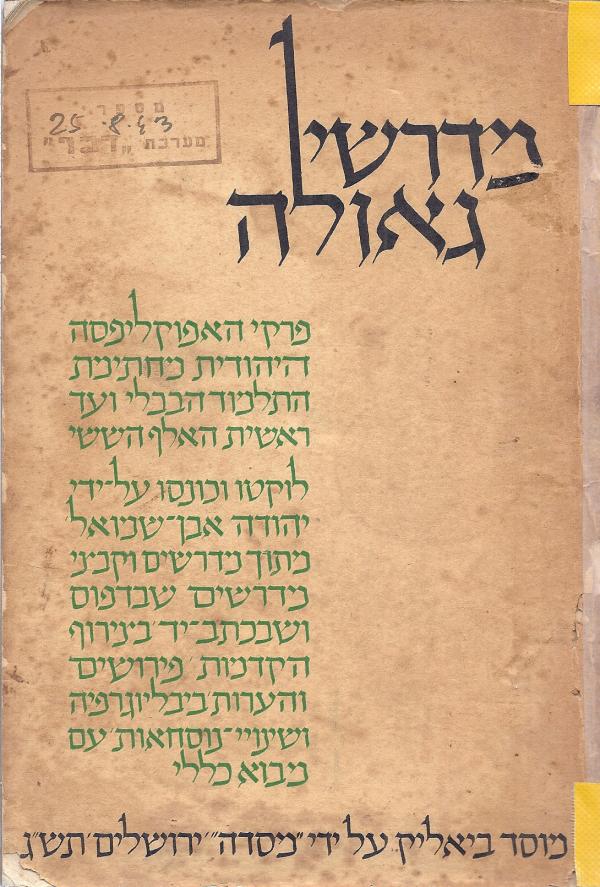 מספר
25.8.43
מערכת „דבר"
מדרשי
גאולה
פרקי האפוקליפסה
היהודית מחתימת
התלמוד הבבלי ועד
ראשית האלף הששי
לוקטו וכונסו על־ידי
יהודה אבן־שמואל
מתוך מדרשים וקבצי
מדרשים שבדפוס
ושבכתב־יד בצירוף
הקדמות פירושים
והערות ביבליוגרפיה
ושינויי־נוסחאות עם
מבוא כללי
מוסד ביאליק על ידי "מסדה" ירושלים תש"ג